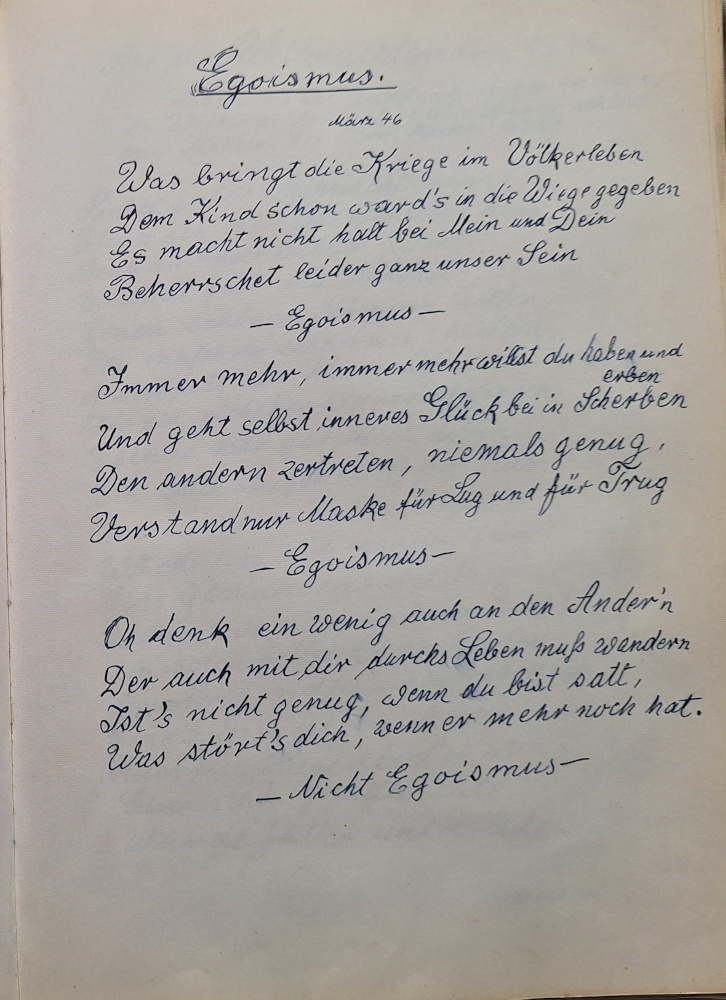 Egoismus.
März 46
Was bringt die Kriege im Völkerleben
Dem Kind schon ward's in die Wiege gegeben
Es macht nicht halt bei Mein und Dein
Beherrschet leider ganz unser Sein
— Egoismus —
Immer mehr, immer mehr willst du haben und
erben
Und geht selbst inneres Glück bei in Scherben
Den andern zertreten, niemals genug,
Verstand nur Maske für Lug und für Trug
— Egoismus —
Oh denk ein wenig auch an den Ander'n
Der auch mit dir durchs Leben muß wandern
Ist's nicht genug, wenn du bist satt,
Was stört's dich, wenn er mehr noch hat.
— Nicht Egoismus —